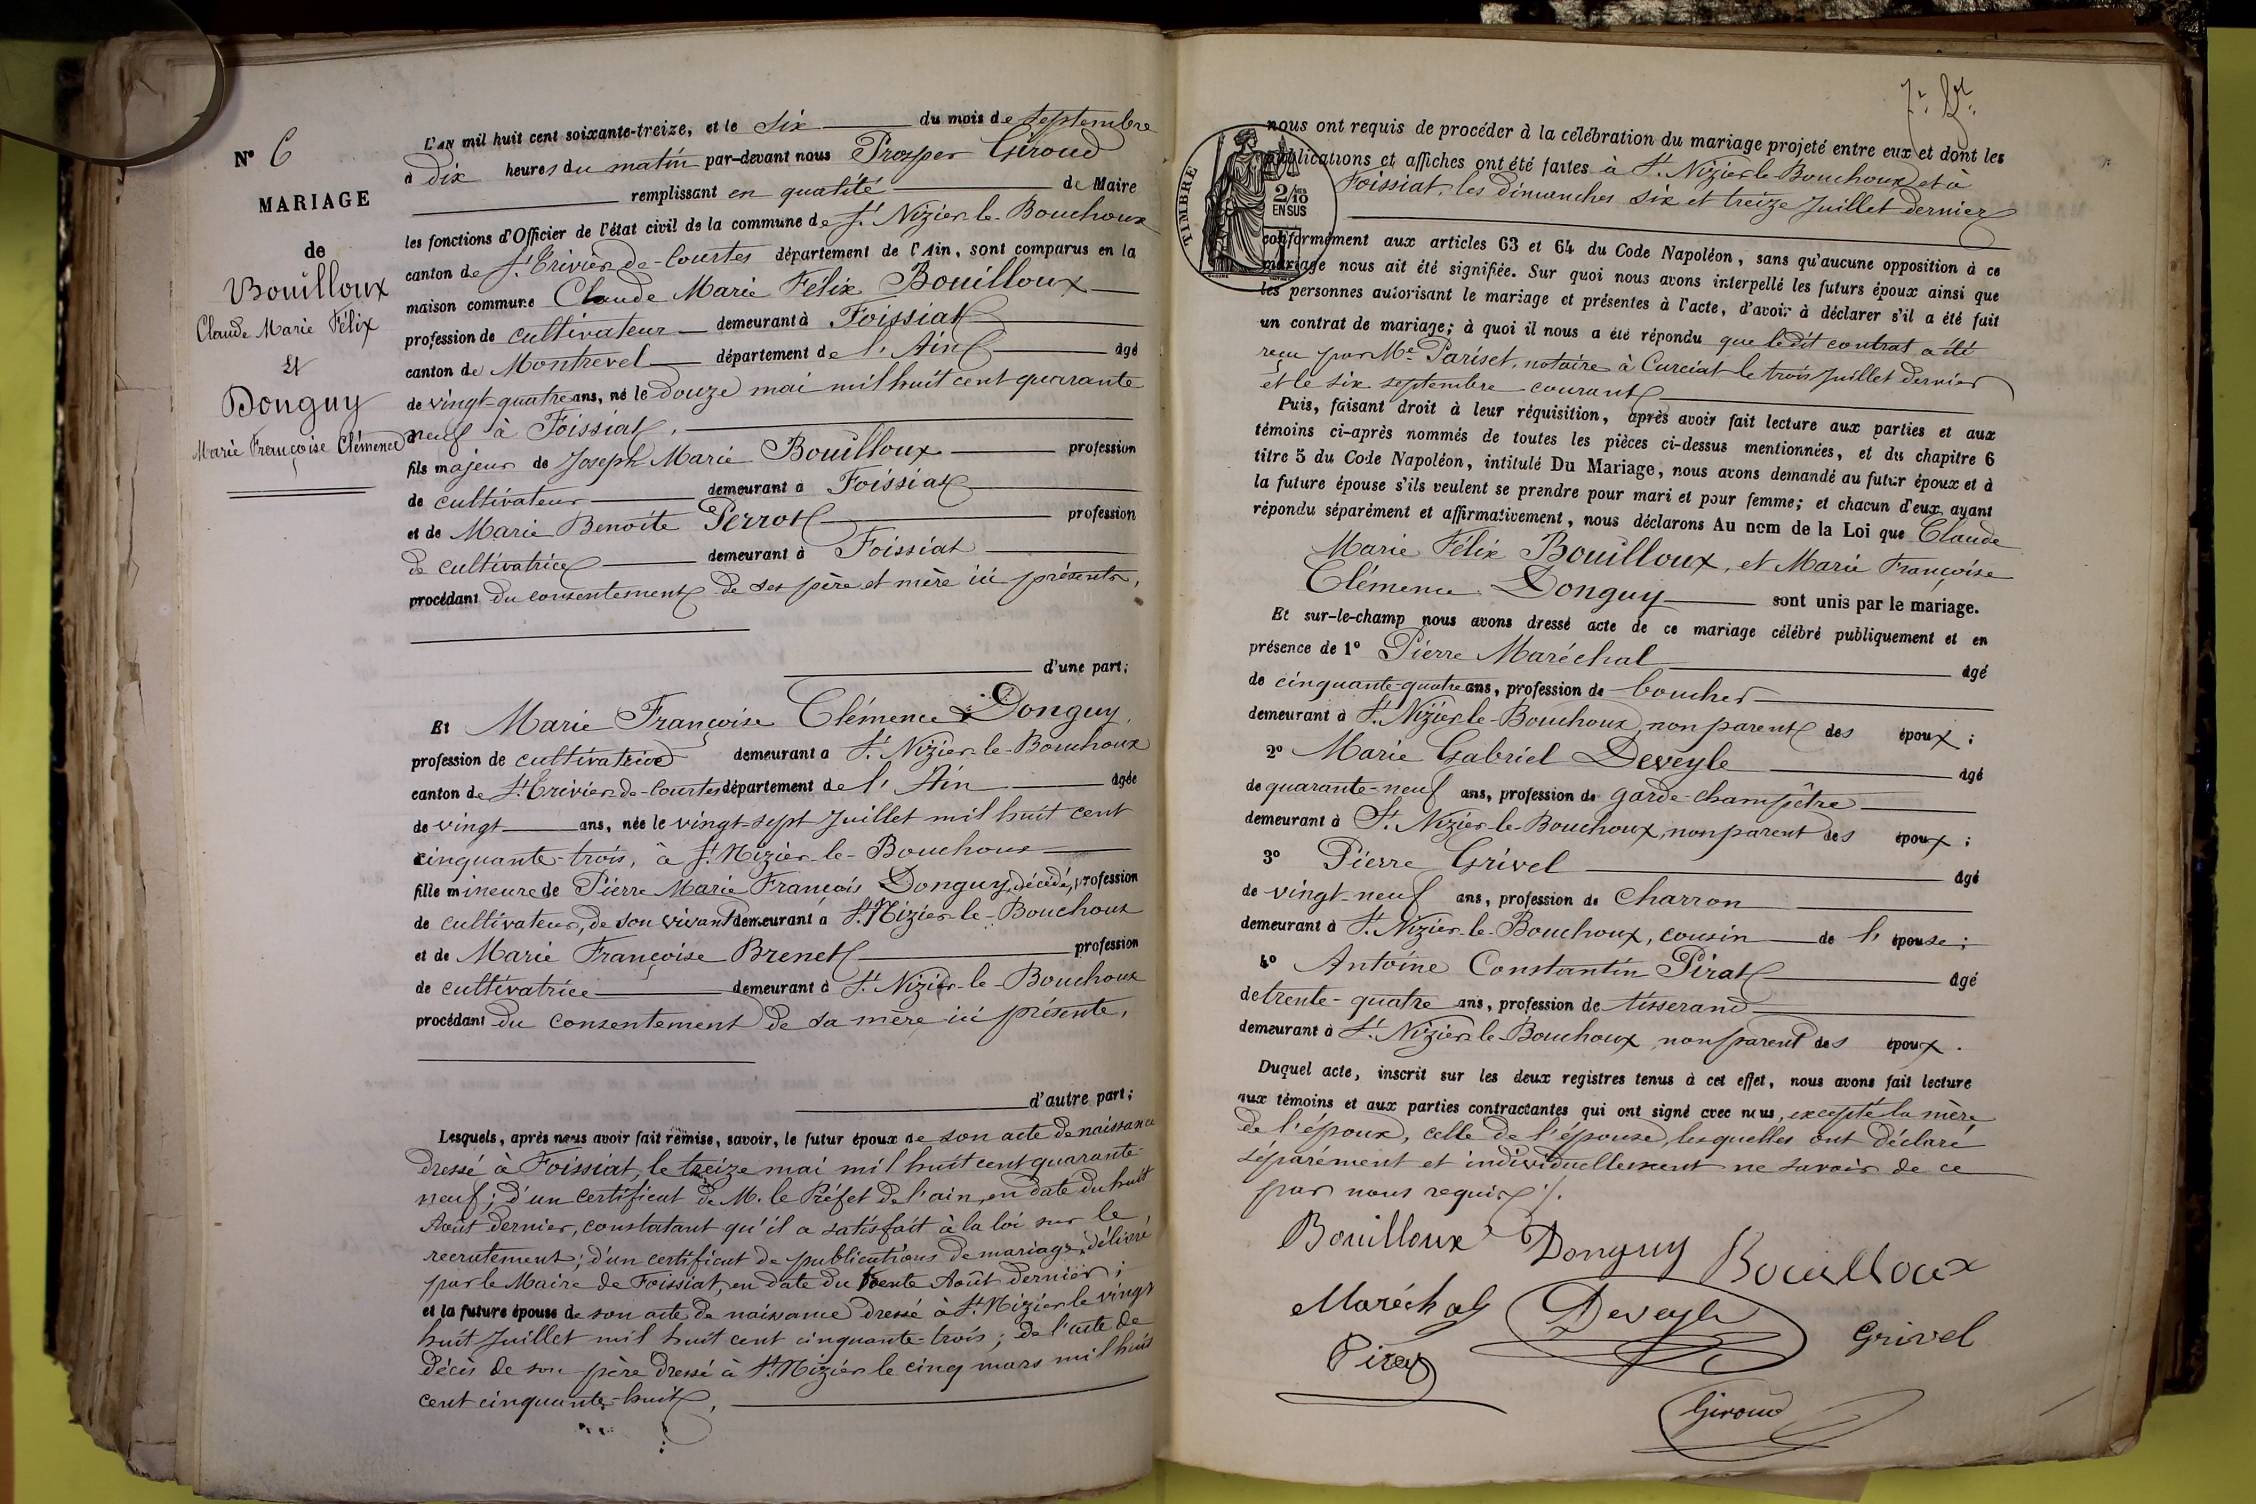 N° 6
MARIAGE
de
Bouilloux
Claude Marie Félix
Et
Donguy
Marie Françoise Clémence
L'AN mil huit cent soixante-treize, et le six du mois de septembre
à dix heures du matin par-devant nous Prosper Giroud
remplissant en qualité de Maire
les fonctions d'Officier de l'état civil de la commune de St. Nizier-le-Bouchoux
canton de St. Trivier-de-Courtes département de l'Ain, sont comparus en la
maison commune Claude Marie Félix Bouilloux
profession de cultivateur demeurant à Foissiat
canton de Montrevel département de l'Ain âgé
de vingt-quatre ans, né le douze mai mil huit cent quarante
neuf à Foissiat,
fils majeur de Joseph Marie Bouilloux profession
de cultivateur demeurant à Foissiat
et de Marie Benoîte Perrot profession
de cultivatrice demeurant à Foissiat
procédant du consentement de ses père et mère ici présents,
d'une part;
Et Marie Françoise Clémence Donguy,
profession de cultivatrice demeurant à St. Nizier-le-Bouchoux
canton de St. Trivier-de-Courtes département de l'Ain âgée
de vingt ans, née le vingt-sept Juillet mil huit cent
cinquante-trois, à St. Nizier-le-Bouchoux
fille mineure de Pierre Marie François Donguy, décédé, profession
de cultivateur, de son vivant demeurant à St. Nizier-le-Bouchoux
et de Marie Françoise Brenet profession
de cultivatrice demeurant à St. Nizier-le-Bouchoux
procédant du consentement de sa mère ici présente,
d'autre part;
Lesquels, après nous avoir fait remise, savoir, le futur époux de son acte de naissance
dressé à Foissiat, le treize mai mil huit cent quarante-
neuf; d'un certificat de M. le Préfet de l'ain, en date du huit
Août dernier, constatant qu'il a satisfait à la loi sur le
recrutement; d'un certificat de publications de mariage, délivré
par le Maire de Foissiat, en date du trente Août dernier;
et la future épouse de son acte de naissance dressé à St. Nizier le vingt
huit Juillet mil huit cent cinquante-trois; de l'acte de
décès de son père dressé à St. Nizier le cinq mars mil huit
cent cinquante-huit,
TIMBRE
2/10
EN SUS
nous ont requis de procéder à la célébration du mariage projeté entre eux et dont les
publications et affiches ont été faites à St. Nizier-le-Bouchoux et à
Foissiat, les dimanches six et treize Juillet dernier
conformément aux articles 63 et 64 du Code Napoléon, sans qu'aucune opposition à ce
mariage nous ait été signifiée. Sur quoi nous avons interpellé les futurs époux ainsi que
les personnes autorisant le mariage et présentes à l'acte, d'avoir à déclarer s'il a été fait
un contrat de mariage; à quoi il nous a été répondu que ledit contrat a été
reçu par Me Pariset, notaire à Curciat le trois Juillet dernier
et le six septembre courant
Puis, faisant droit à leur réquisition, après avoir fait lecture aux parties et aux
témoins ci-après nommés de toutes les pièces ci-dessus mentionnées, et du chapitre 6
titre 5 du Code Napoléon, intitulé Du Mariage, nous avons demandé au futur époux et à
la future épouse s'ils veulent se prendre pour mari et pour femme; et chacun d'eux ayant
répondu séparément et affirmativement, nous déclarons Au nom de la Loi que Claude
Marie Félix Bouilloux, et Marie Françoise
Clémence Donguy sont unis par le mariage.
Et sur-le-champ nous avons dressé acte de ce mariage célébré publiquement et en
présence de 1° Pierre Maréchal âgé
de cinquante-quatre ans, profession de boucher
demeurant à St. Nizier-le-Bouchoux, non parent des époux;
2° Marie Gabriel Deveyle âgé
de quarante-neuf ans, profession de garde-champêtre
demeurant à St. Nizier-le-Bouchoux, non parent des époux;
3° Pierre Grivel âgé
de vingt-neuf ans, profession de Charron
demeurant à St. Nizier-le-Bouchoux, cousin de l'épouse;
4° Antoine Constantin Pirat âgé
de trente-quatre ans, profession de tisserand
demeurant à St. Nizier-le-Bouchoux, non parent des époux.
Duquel acte, inscrit sur les deux registres tenus à cet effet, nous avons fait lecture
aux témoins et aux parties contractantes qui ont signé avec nous, excepté la mère
de l'époux, celle de l'épouse, lesquelles ont déclaré
séparément et individuellement ne savoir de ce
par nous requis ./.
Bouilloux Donguy Bouilloux
Maréchal Deveyle Grivel
Pirat
Giroud